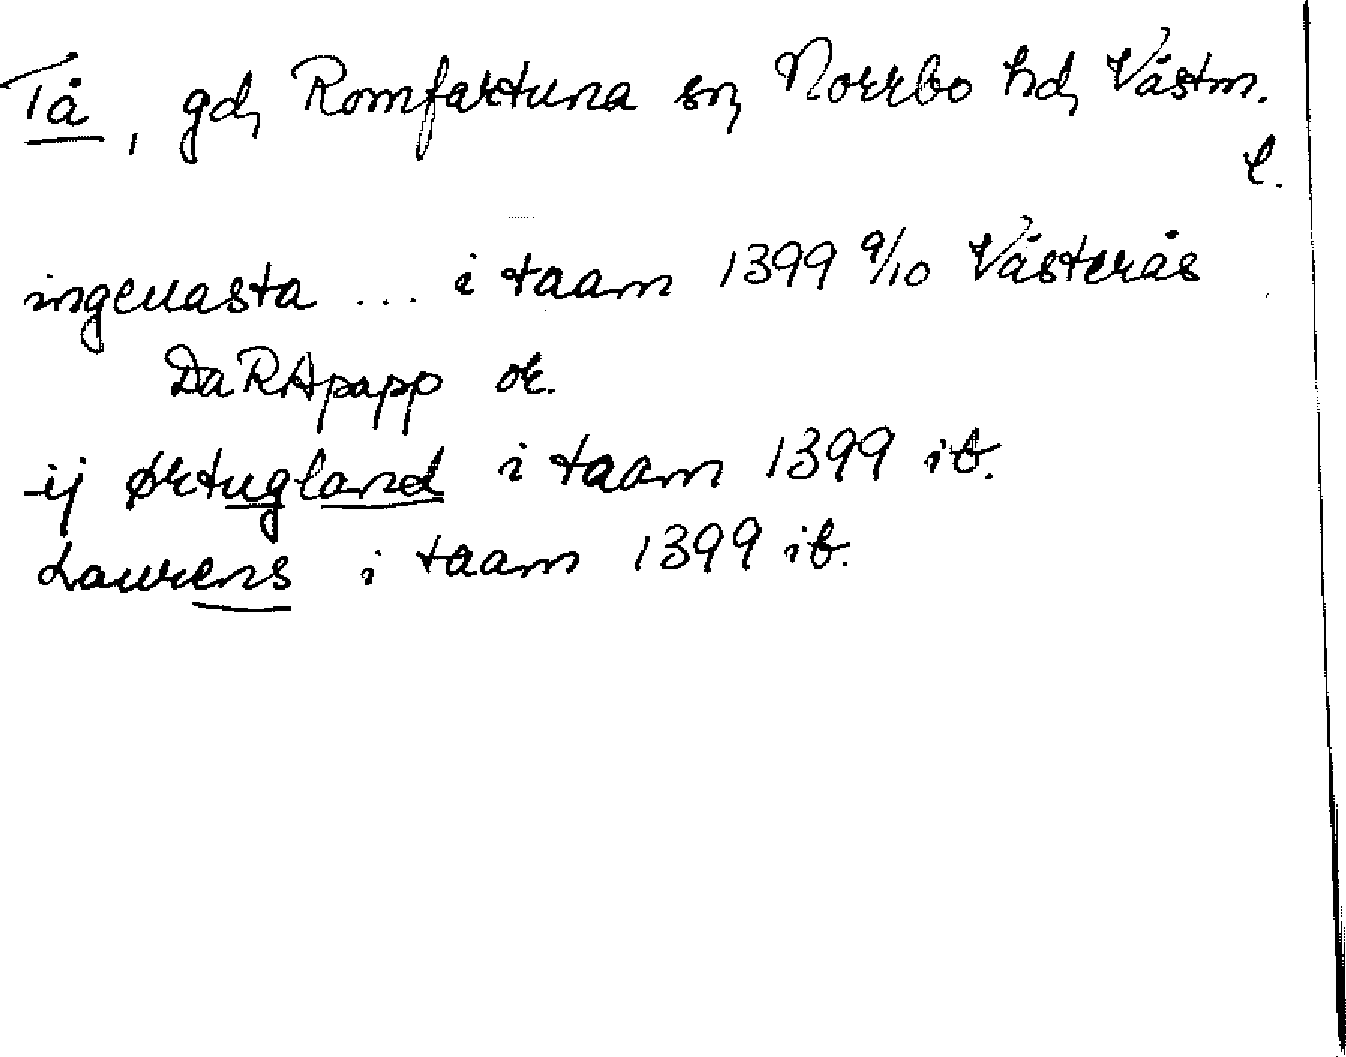 Tå, gd, Romfartuna sn, Norrbo hd, Västm.
l.
ingeuasta ... i taam 1399 9/10 Västerås
DaRApapp or.
ij ørtugland i taam 1399 ib.
Laurens i taam 1399 ib.